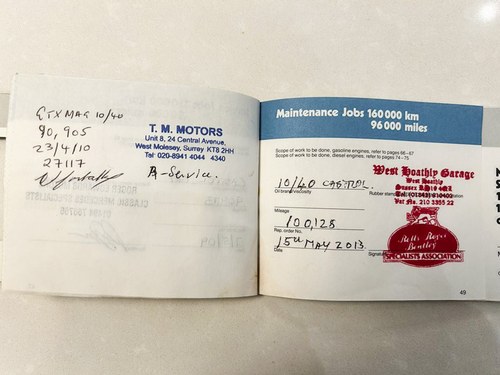 GTX MAG 10/40
90,905
23/4/10
27117
T. M. MOTORS
Unit 8, 24 Central Avenue,
West Molesey, Surrey KT8 2HH
Tel: 020-8941 4044 4340
A-Service.
Maintenance Jobs 160 000 km
96 000 miles
Scope of work to be done, gasoline engines, refer to pages 66-67
Scope of work to be done, diesel engines, refer to pages 74-75
10/40 CASTROL
Oil brand/viscosity
Rubber stamp
Mileage
100,128
Rep. order No.
15TH MAY 2013.
Date
Signature
West Hoathly Garage
West Hoathly
Sussex RH19 4QL
Tel: (01342) 810400
Vat No. 210 3355 22
Rolls Royce
Bentley
SPECIALISTS ASSOCIATION
49